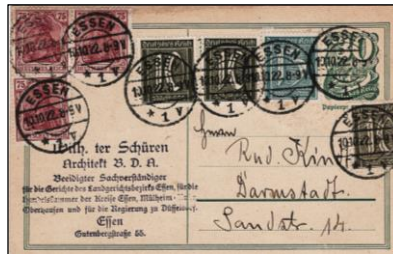 75
ESSEN
10.10.22. 8-9 V
* 1 v
75
ESSEN
10.10.22. 8-9 V
Wilh. ter Schüren
Architekt B. D. A.
Beeidigter Sachverständiger
für die Gerichte des Landgerichtsbezirks Essen, für die
Handelskammer der Kreise Essen, Mülheim-
Oberhausen und für die Regierung zu Düsseldorf.
Essen
Gutenbergstraße 55.
Herrn
Rud.
Darmstadt.
Sandstr. 14.